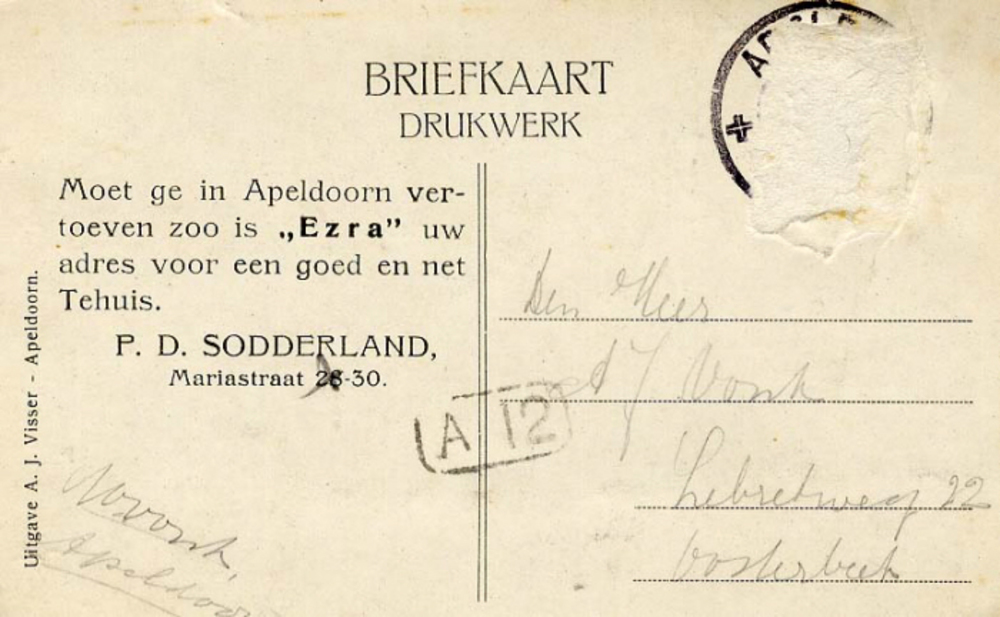 BRIEFKAART
DRUKWERK
Moet ge in Apeldoorn ver-
toeven zoo is „Ezra” uw
adres voor een goed en net
Tehuis.
P. D. SODDERLAND,
Mariastraat 28-30.
Uitgave A. J. Visser - Apeldoorn.
A 12
Den Heer
A J Vonk
Lebretweg 22
Oosterbeek
Apeldoor